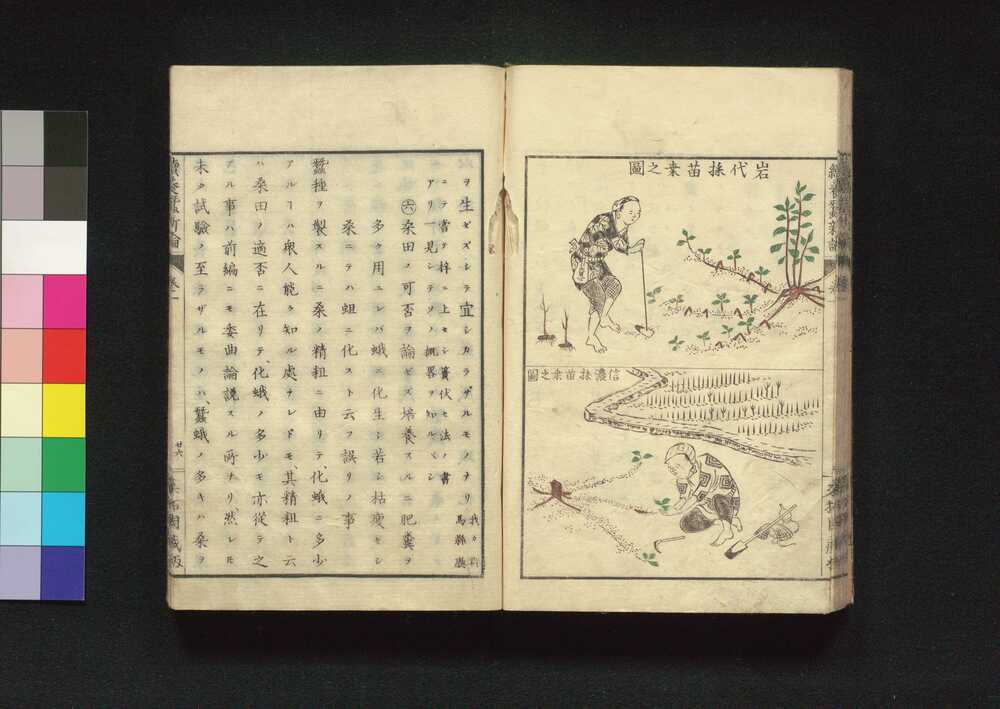 岩代採苗桒之圖
信濃採苗桒之圖
ヲ生ゼズシテ宜シカラザルモノナリ
ニテ當テ梓ニ上セシ簀伏セ法ノ書
アリ一見シテソノ概畧ヲ知ルベシ
㊅桑田ノ可否ヲ論ゼズ培養スルニ肥糞ヲ
多ク用ユレバ蛾ニ化生シ若シ枯瘦セシ
桒ニテハ蛆ニ化スト云フ誤リノ事
蠶種ヲ製スルニ桑ノ精粗ニ由リテ、化蛾ニ多少
アルヿハ衆人能ク知ル處ナレドモ、其精粗ト云
ハ桑田ノ適否ニ在リテ、化蛾ノ多少モ亦從テ之
アル事ハ前編ニモ委曲論説スル所ナリ、然レ𪜈
未タ試驗ノ至ラザルモノハ、蠶蛾ノ多キハ桑ヲ
續養蠶新論
廿六